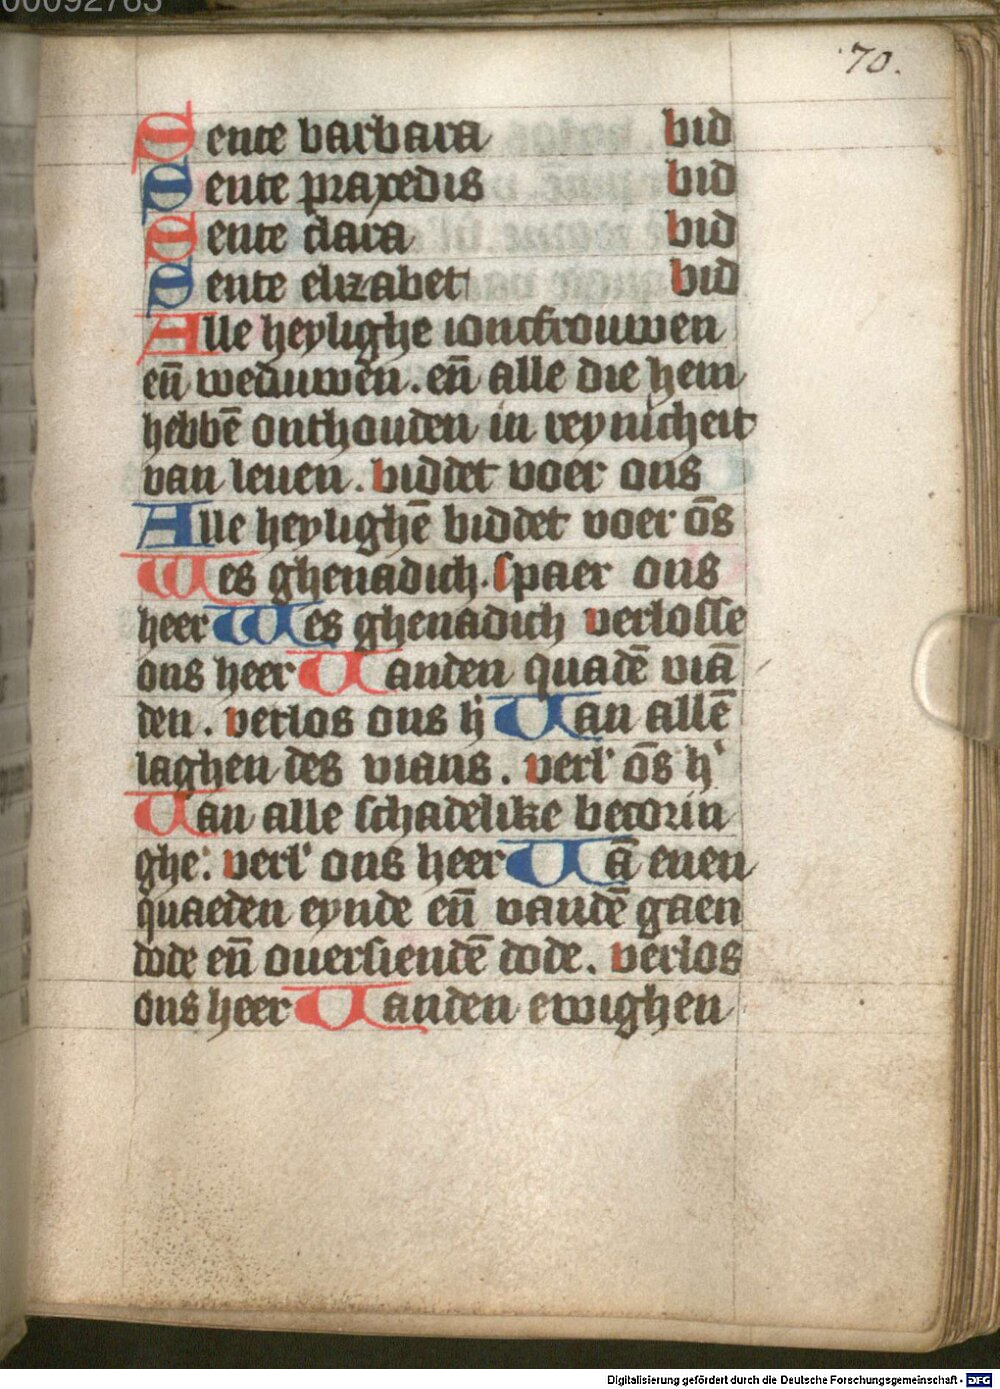 00092763
70.
Sente barbara bid
Sente praxedis bid
Sente clara bid
Sente elizabet bid
Alle heylighe ioncfrouwen
en̄ weduwen. en̄ alle die hem
hebbē onthouden in reynicheit
van leuen. biddet voer ons
Alle heylighē biddet voer ōs
Wes ghenadich. spaer ons
heer Wes ghenadich verlosse
ons heer Vanden quadē viā
den. verlos ons h' Van allē
laghen des vians. verl' ōs h'
Van alle schadelike becorin
ghe. verl' ons heer Vā enen
quaeden eynde en̄ vandē gaen
dode en̄ ouersiendē dode. verlos
ons heer Vanden ewighen
Digitalisierung gefördert durch die Deutsche Forschungsgemeinschaft - DFG